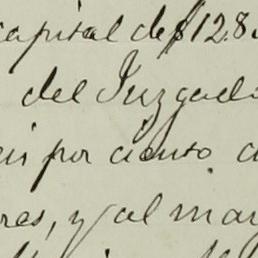 capital de $12.8
del Juzgado
eis por ciento a
res, y al mar